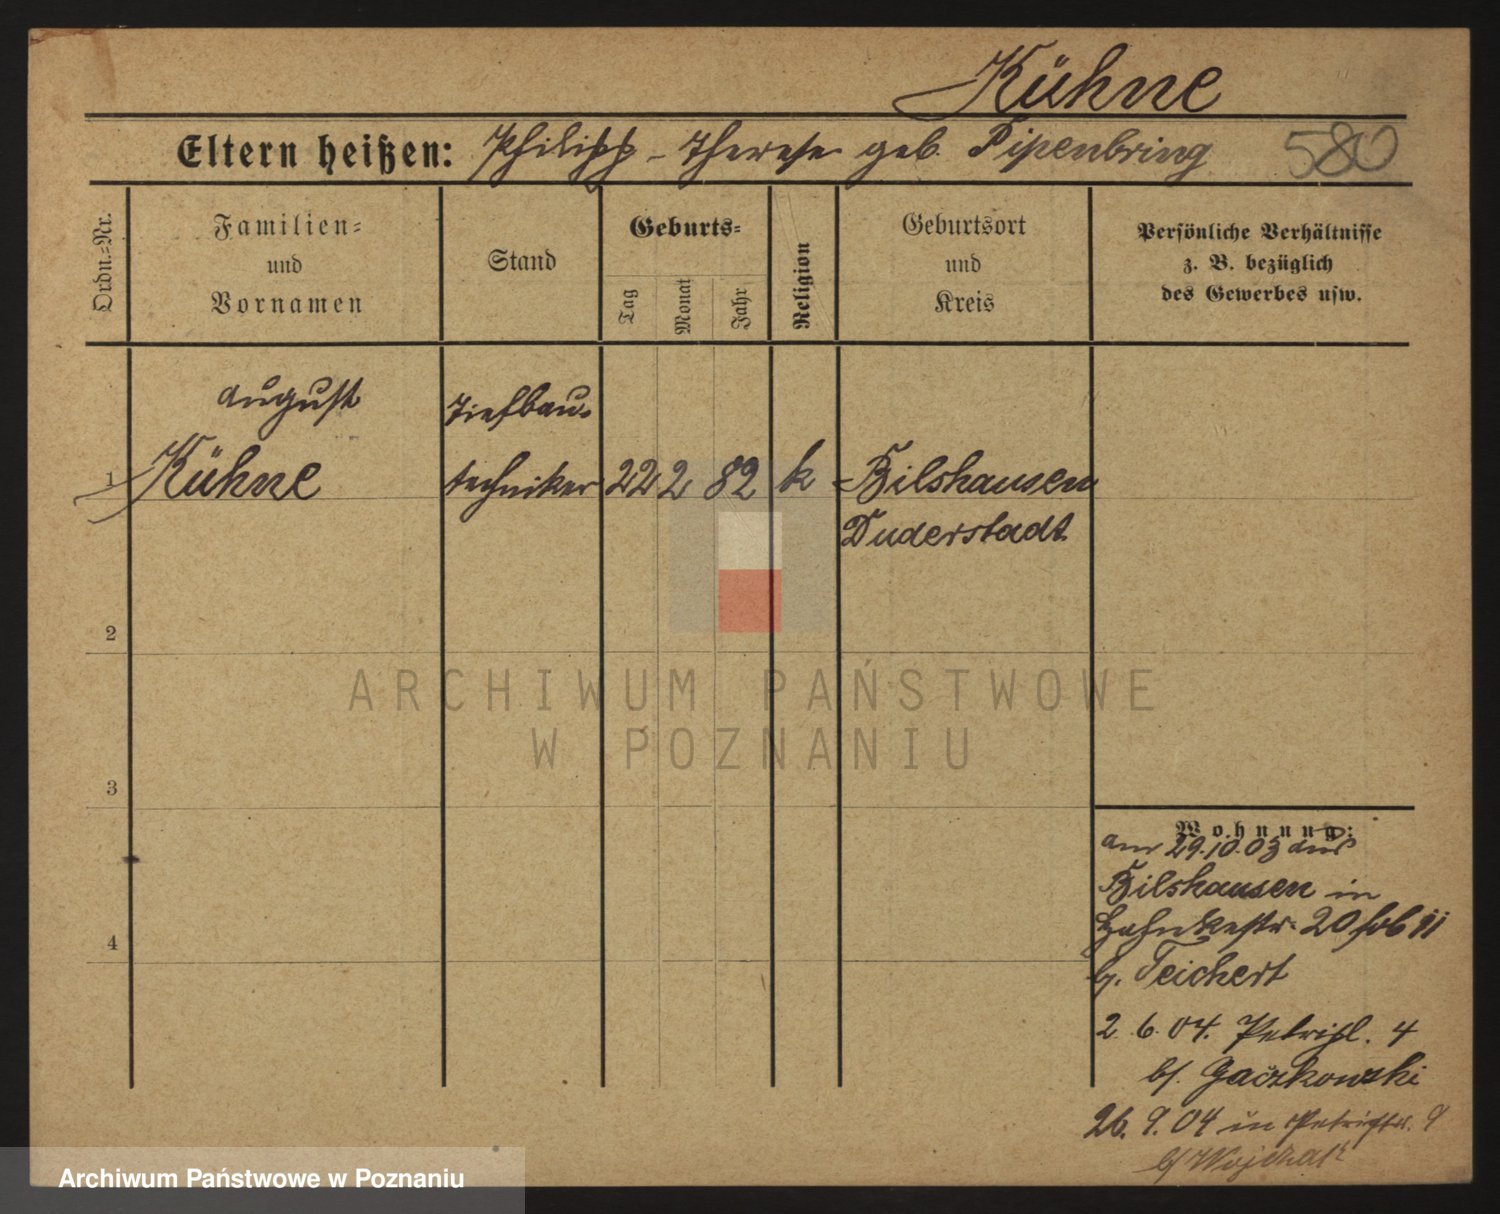 Kühne
Eltern heißen: Philipp - Therese geb. Pipenbring 580
Ordn.=Nr.
Familien=
und
Vornamen
Stand
Geburts=
Tag
Monat
Jahr
Religion
Geburtsort
und
Kreis
Persönliche Verhältnisse
z. B. bezüglich
des Gewerbes usw.
August Tiefbau-
1 Kühne techniker 22 2 82 k Bilshausen
Duderstadt
2
ARCHIWUM PAŃSTWOWE
W POZNANIU
3
Wohnung:
am 29.10.03 aus
Bilshausen in
20
4
b/. Teichert
2. 6. 04. 4
b/. Gaczkowski
26. 9. 04 in Petristr. 9
b/
Archiwum Państwowe w Poznaniu